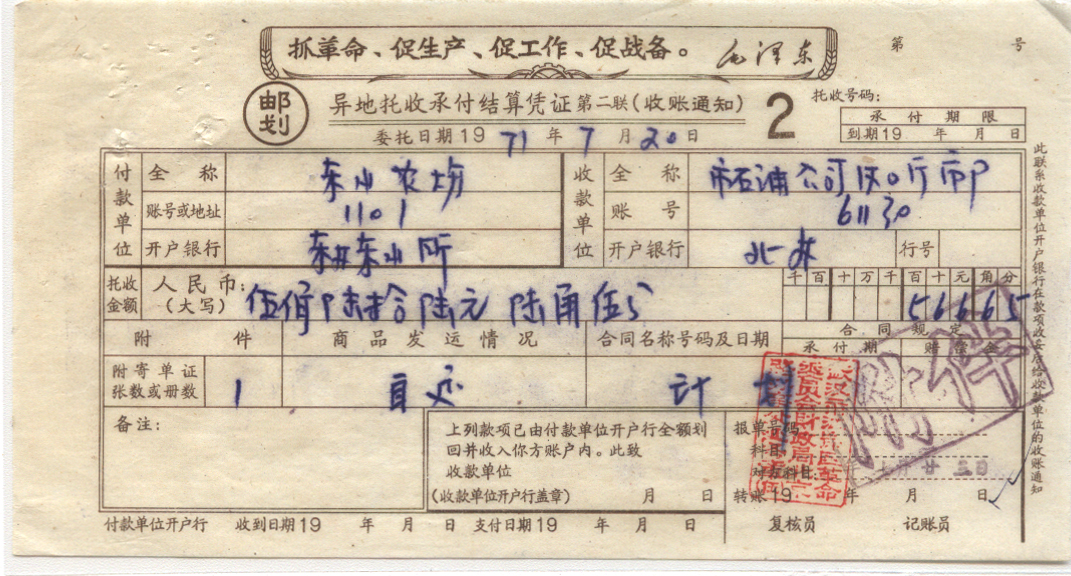 抓革命、促生产、促工作、促战备。 毛泽东
第 号
邮划
异地托收承付结算凭证 第二联(收账通知) 2
托收号码:
承付期限
到期19 年 月 日
委托日期19 71 年 7 月 20 日
付款单位
全称 东山农场
账号或地址 1101
开户银行 东山所
收款单位
全称 市石油公司 市
账号 61130
开户银行 北 行号
托收金额 人民币:(大写) 伍佰陆拾陆元陆角伍分
千百十万千百十元角分
56665
附件
商品发运情况
合同名称号码及日期
合同规定
承付期 赔偿金
附寄单证张数或册数 1 自还 计划
附件
备注:
上列款项已由付款单位开户行全额划
回并收入你方账户内。此致
收款单位
(收款单位开户行盖章) 月 日
报单号码
科目
对方科目
转账19 年 月 日
复核员 记账员
付款单位开户行 收到日期19 年 月 日 支付日期19 年 月 日
此联系收款单位开户银行在款项收妥后给收款单位的收账通知